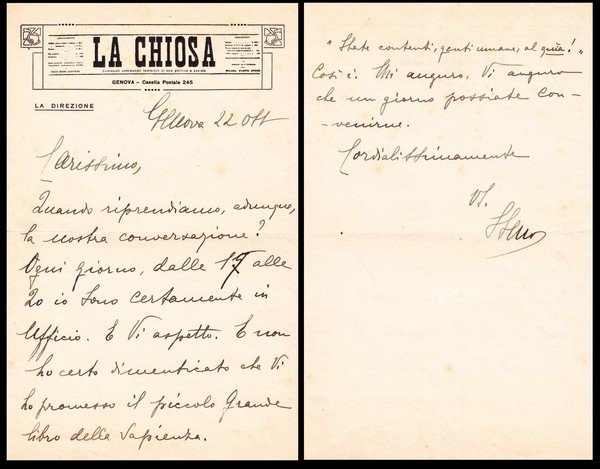 LA CHIOSA
GENOVA - Casella Postale 245
LA DIREZIONE
Genova 22 Ott
Carissimo,
Quando riprendiamo, adunque,
la nostra conversazione?
Ogni giorno, dalle 17 alle
20 io sono certamente in
Ufficio. E Vi aspetto. E non
ho certo dimenticato che Vi
ho promesso il piccolo grande
libro della Sapienza.
"State contenti, genti umane, al quia!"
Così è. Mi auguro, Vi auguro
che un giorno possiate con-
-venirne.
Cordialissimamente
Vs.